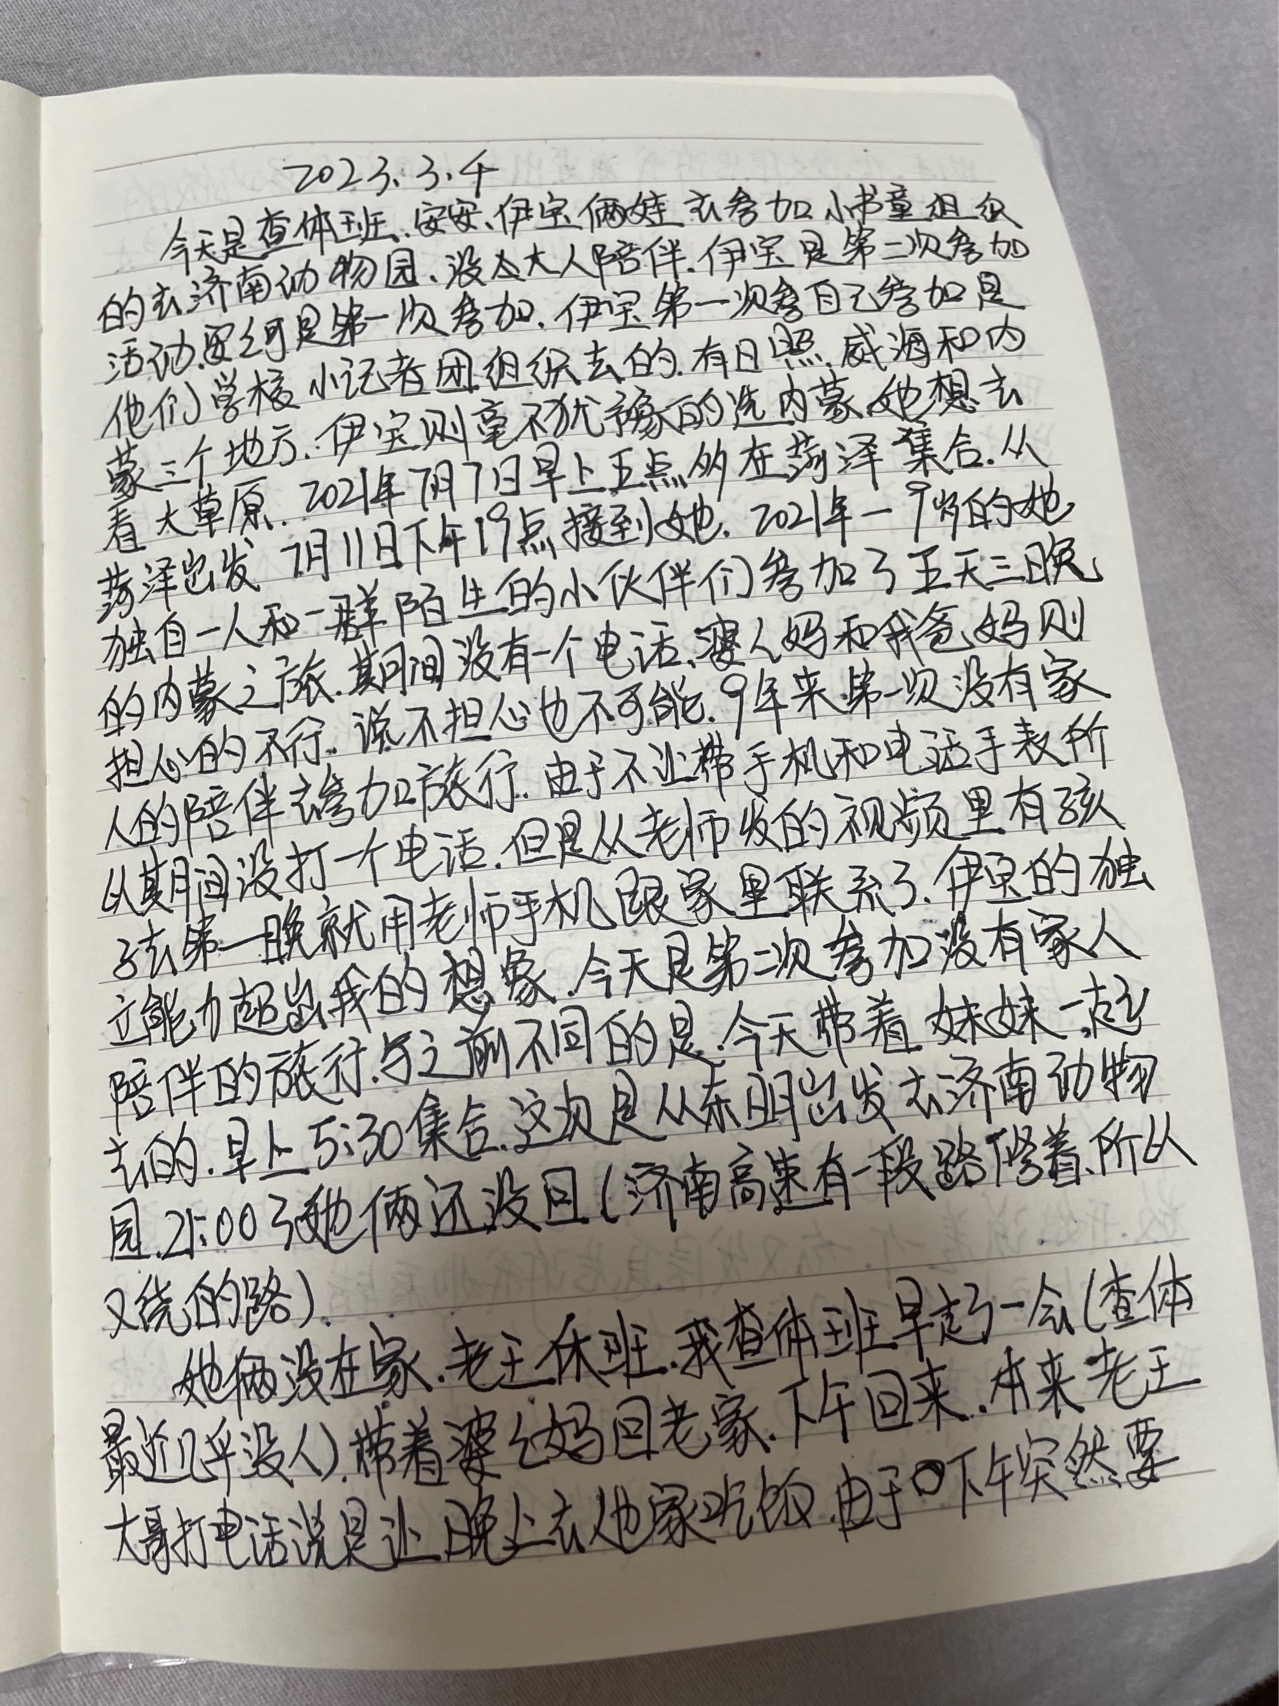 2023.3.4
今天是查体班、安安、伊宝俩娃去参加小书童组织
的去济南动物园、没大人陪伴、伊宝是第二次参加
活动、安安是第一次参加、伊宝第一次自己参加是
他们学校小记者团组织去的、有日照、威海和内
蒙三个地方、伊宝则毫不犹豫的选内蒙、她想去
看大草原、2021年7月7日早上五点多在菏泽集合、从
菏泽出发 7月11日下午19点接到她、2021年一9岁的她
独自一人和一群陌生的小伙伴们参加了五天三晚
的内蒙之旅、期间没有一个电话、婆婆妈和我爸妈则
担心的不行、说不担心也不可能、9年来第一次没有家
人的陪伴去参加旅行、由于不让带手机和电话手表所
以期间没打一个电话、但是从老师发的视频里有孩
子去第一晚就用老师手机跟家里联系了、伊宝的独
立能力超出我的想象、今天是第二次参加没有家人
陪伴的旅行、与之前不同的是、今天带着妹妹一起
去的、早上5:30集合、这次是从东明出发去济南动物
园、21:00了她俩还没回(济南高速有一段路修着、所以
又绕的路)、
她俩没在家、老王休班、我查体班早起了一会(查体
最近几乎没人)、带着婆婆妈回老家、下午回来、本来老王
大哥打电话说是让晚上去他家吃饭、由于下午突然要